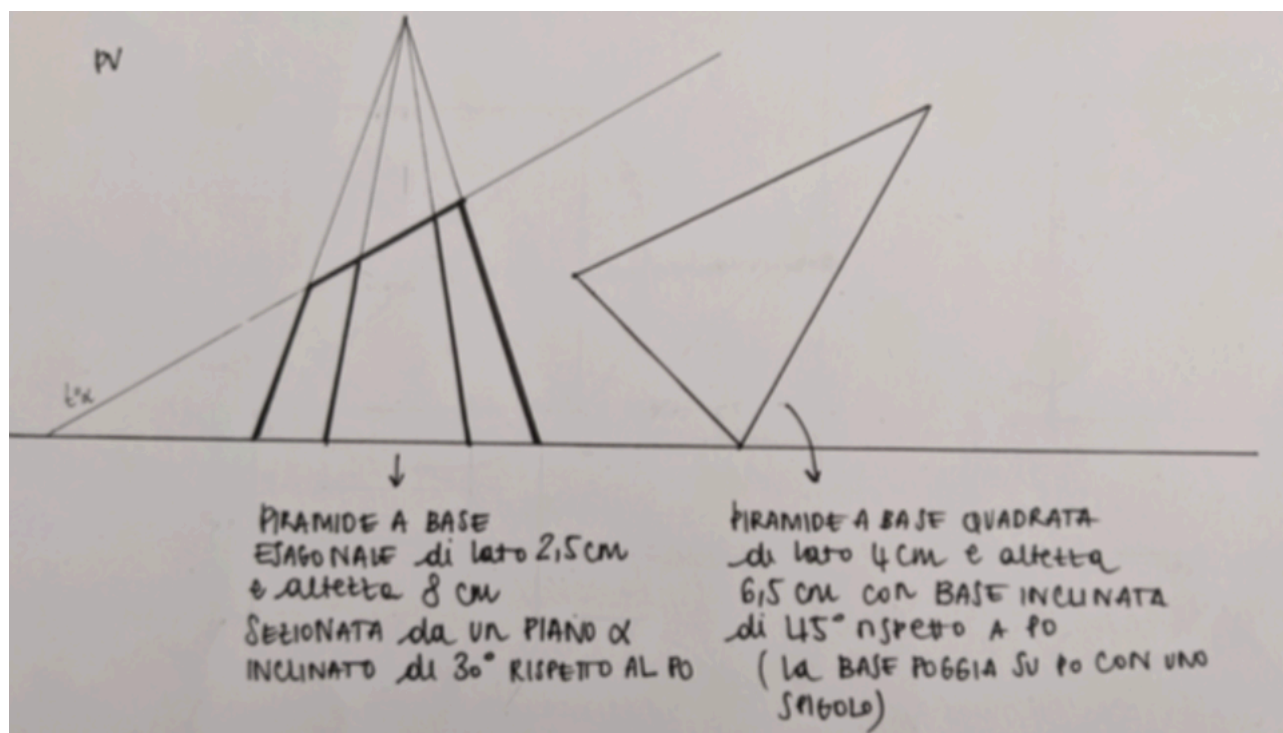 PV
t"α
PIRAMIDE A BASE
ESAGONALE di lato 2,5cm
e altezza 8 cm
SEZIONATA da UN PIANO α
INCLINATO di 30° RISPETTO AL PO
PIRAMIDE A BASE QUADRATA
di lato 4 cm e altezza
6,5 cm CON BASE INCLINATA
di 45° rispetto A PO
(la BASE POGGIA SU PO CON UNO
SPIGOLO)